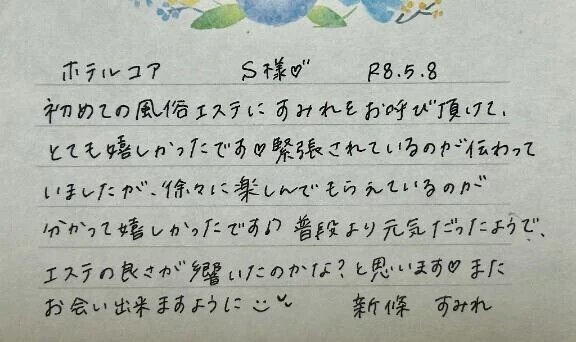 ホテルコア S様♡ R8.5.8
初めての風俗エステにすみれをお呼び頂けて、
とても嬉しかったです♡緊張されているのが伝わって
いましたが、徐々に楽しんでもらえているのが
分かって嬉しかったです♪ 普段より元気だったようで、
エステの良さが響いたのかな?と思います♡また
お会い出来ますように 新條 すみれ